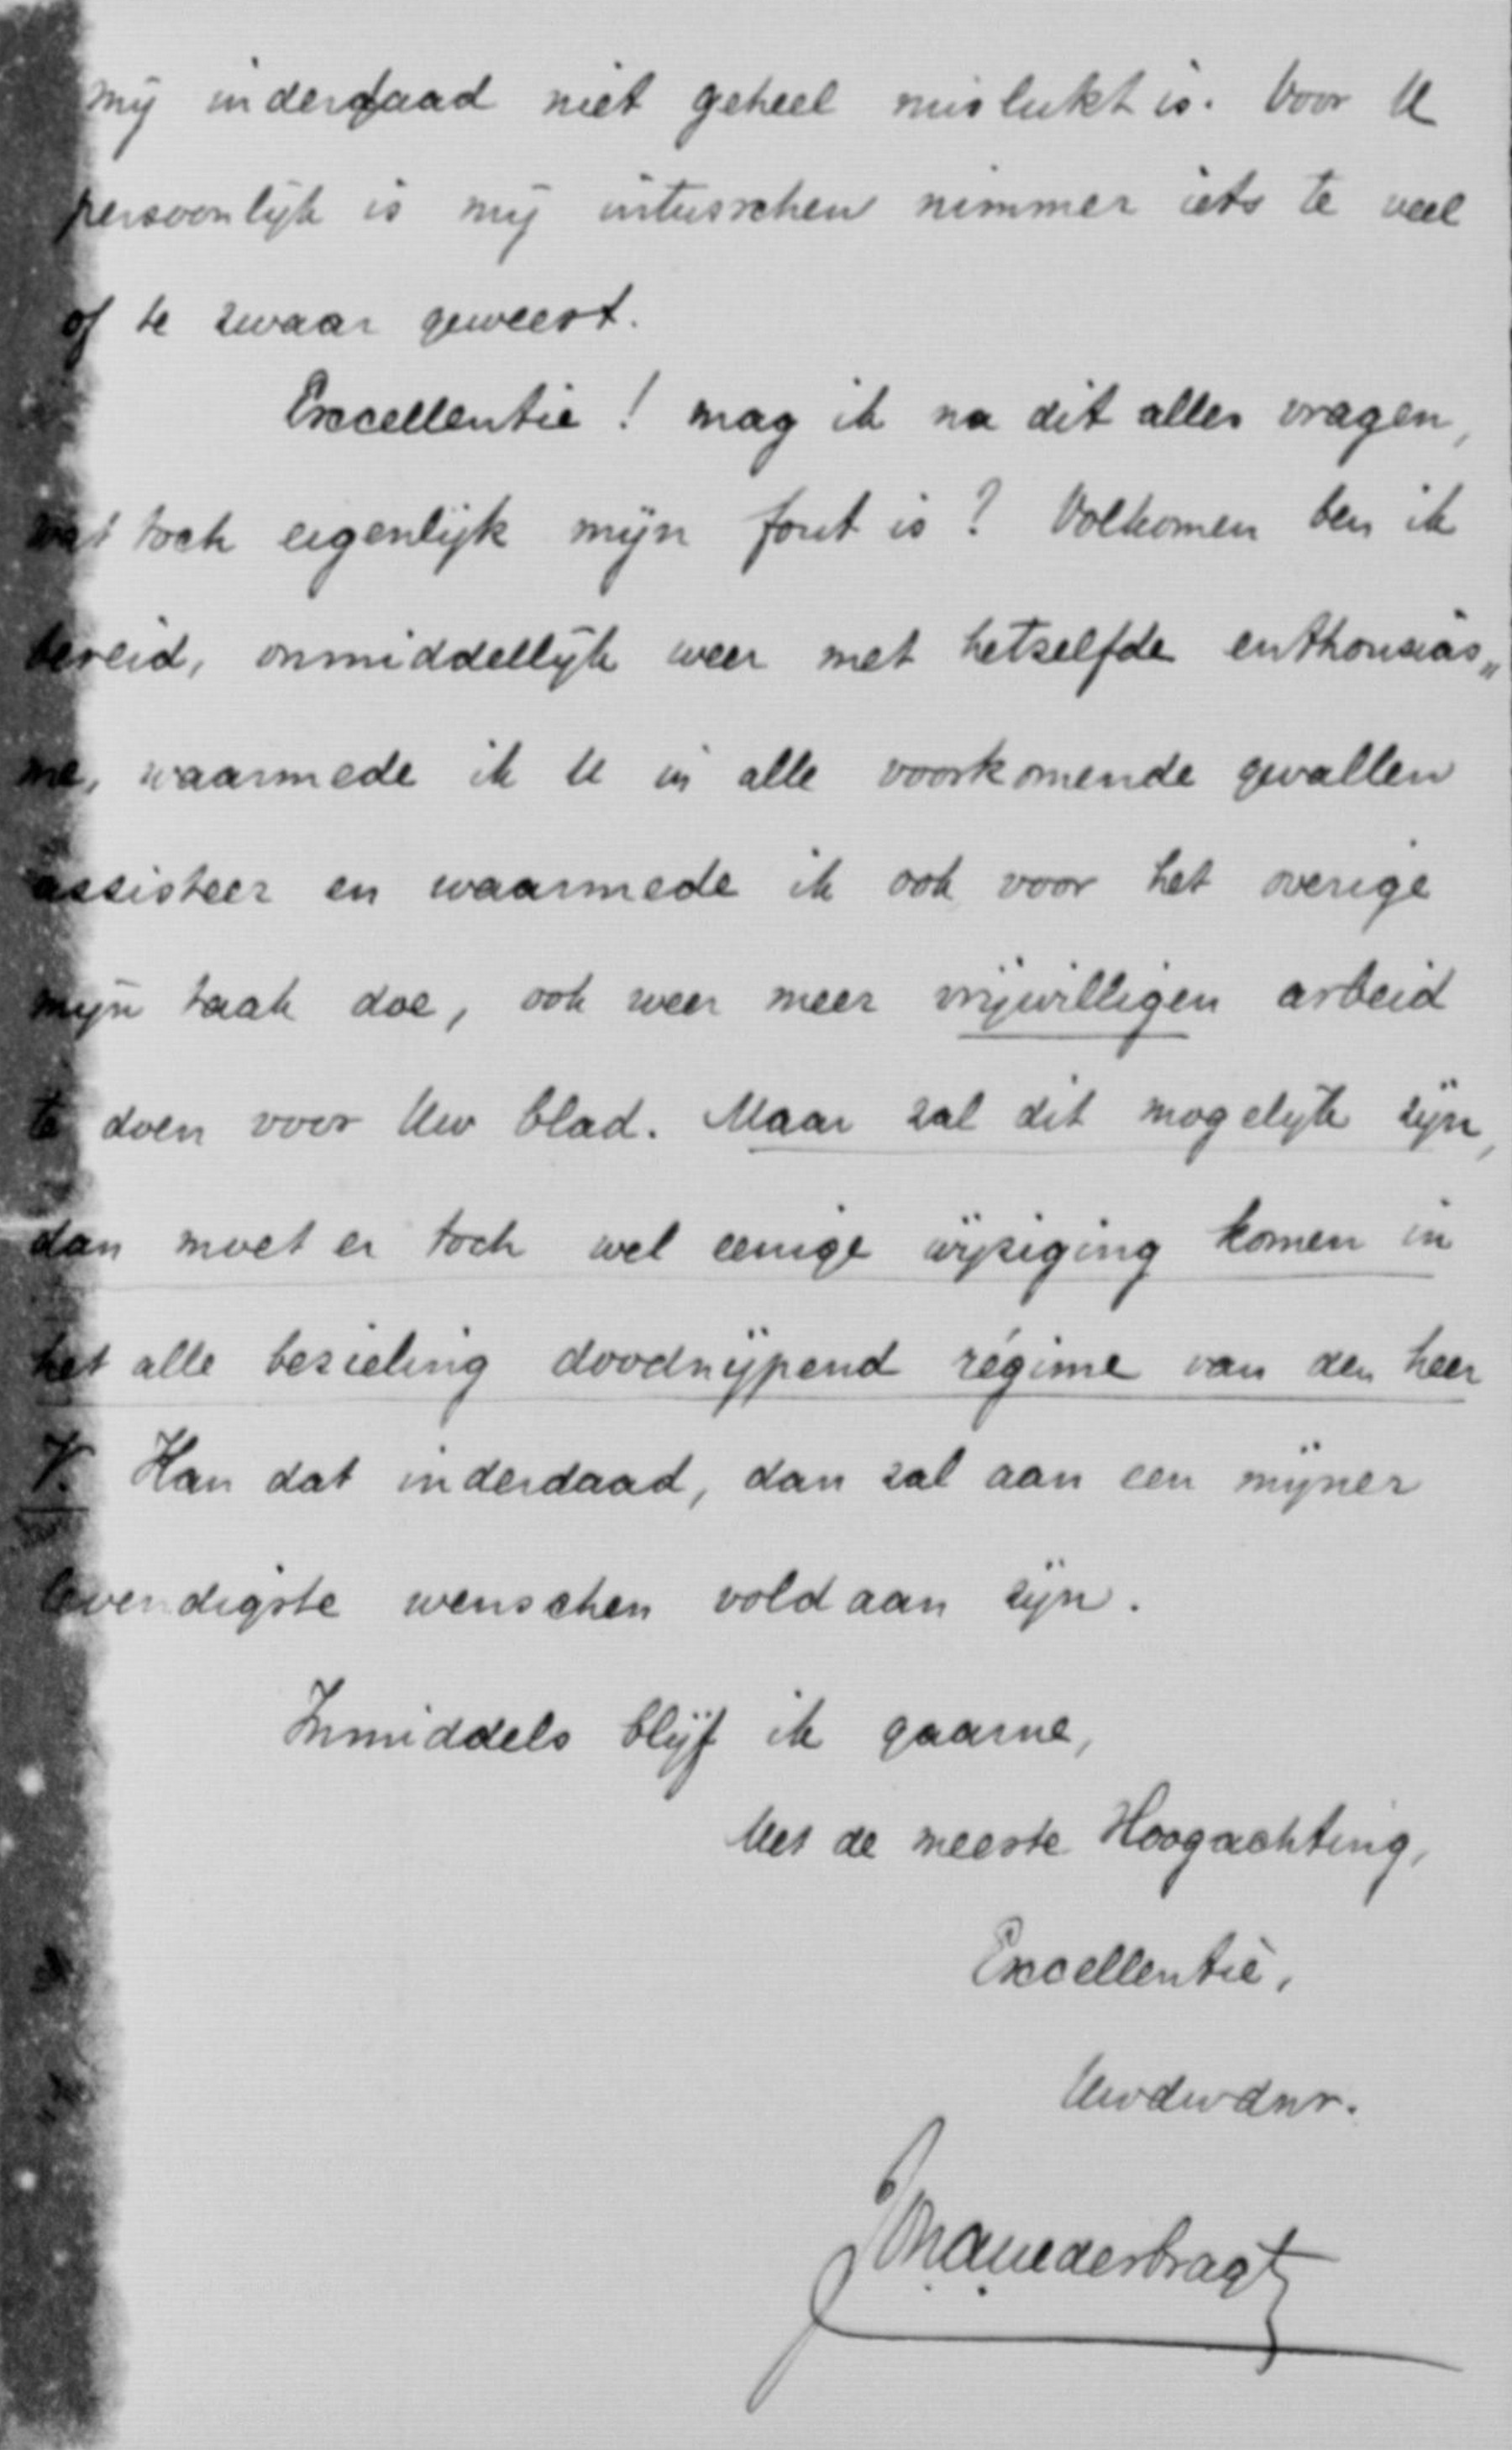 mij inderdaad niet geheel mislukt is. Voor U
persoonlijk is mij intusschen nimmer iets te veel
of te zwaar geweest.
Excellentie! mag ik na dit alles vragen,
wat toch eigenlijk mijn fout is? Volkomen ben ik
bereid, onmiddellijk weer met hetzelfde enthousias„
me, waarmede ik U in alle voorkomende gevallen
assisteer en waarmede ik ook voor het overige
mijn taak doe, ook weer meer vrijwilligen arbeid
te doen voor Uw blad. Maar zal dit mogelijk zijn,
dan moet er toch wel eenige wijziging komen in
het alle bezieling doodnijpend régime van den heer
V. Kan dat inderdaad, dan zal aan een mijner
levendigste wenschen voldaan zijn.
Inmiddels blijf ik gaarne,
Met de meeste Hoogachting,
Excellentie,
Uwdwdnr.